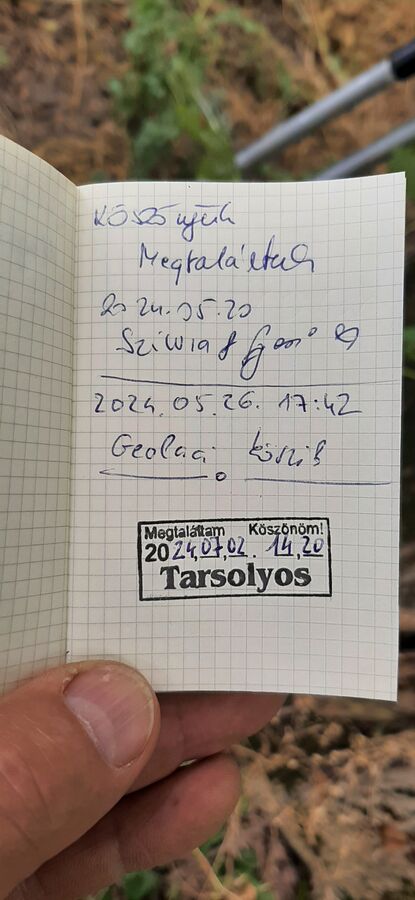 Köszönjük
Megtaláltuk
2024.05.20
Szilvia &
2024.05.26. 17:42
Geolaci köszi
Megtaláltam Köszönöm!
2024,07,02. 14,20
Tarsolyos